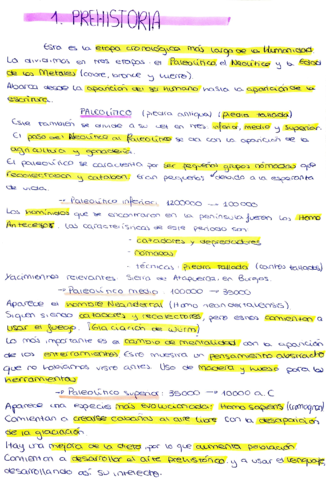 1. PREHISTORIA
Esta es la etapa cronológica más larga de la Humanidad
La dividimos en tres etapas: el Paleolítico, el Neolítico y la Edad
de los Metales (cobre, bronce y hierro).
Abarca desde la aparición del ser humano hasta la aparición de la
escritura.
PALEOLÍTICO (piedra antigua) (piedra tallada)
Este también se divide a su vez en tres: inferior, medio y superior.
El paso del Neolítico al Paleolítico se da con la aparición de la
agricultura y ganadería.
El paleolítico se caracteriza por ser pequeños grupos nómadas que
recolectaban y cazaban. Eran pequeños debido a la esperanza
de vida.
→ Paleolítico inferior: 1200000 → 100000
Los homínidos que se encontraron en la península fueron los Homo
Antecesor. Las características de este periodo son:
- cazadores y depredadores
- nómadas
- técnicas: piedra tallada (cantos tallados)
Yacimientos relevantes: Sierra de Atapuerca, en Burgos.
→ Paleolítico medio: 100000 → 35000
Aparece el hombre Neandertal (Homo neandertalensis)
Siguen siendo cazadores y recolectores, pero estos comienzan a
usar el fuego. (Glaciación de Würm)
Lo más importante es el cambio de mentalidad con la aparición
de los enterramientos (Esto muestra un pensamiento abstracto
que no habíamos visto antes. Uso de madera y hueso para las
herramientas
→ Paleolítico superior: 35000 → 10000 a.C
Aparece una especie más evolucionada: Homo sapiens (cromagnon)
Comienzan a crearse cabañas al aire libre con la desaparición
de la glaciación
Hay una mejora de la dieta por lo que aumenta población
Comienzan a desarrollar el arte prehistórico y a usar el lenguaje,
desarrollando así su intelecto.